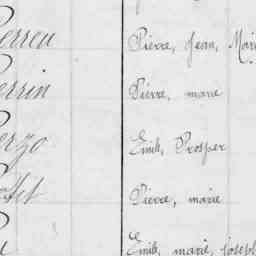 Perreu Pierre, Jean, Marie
Perrin Pierre, marie
Émile, Prosper
Pierre, marie
Émile, marie, joseph